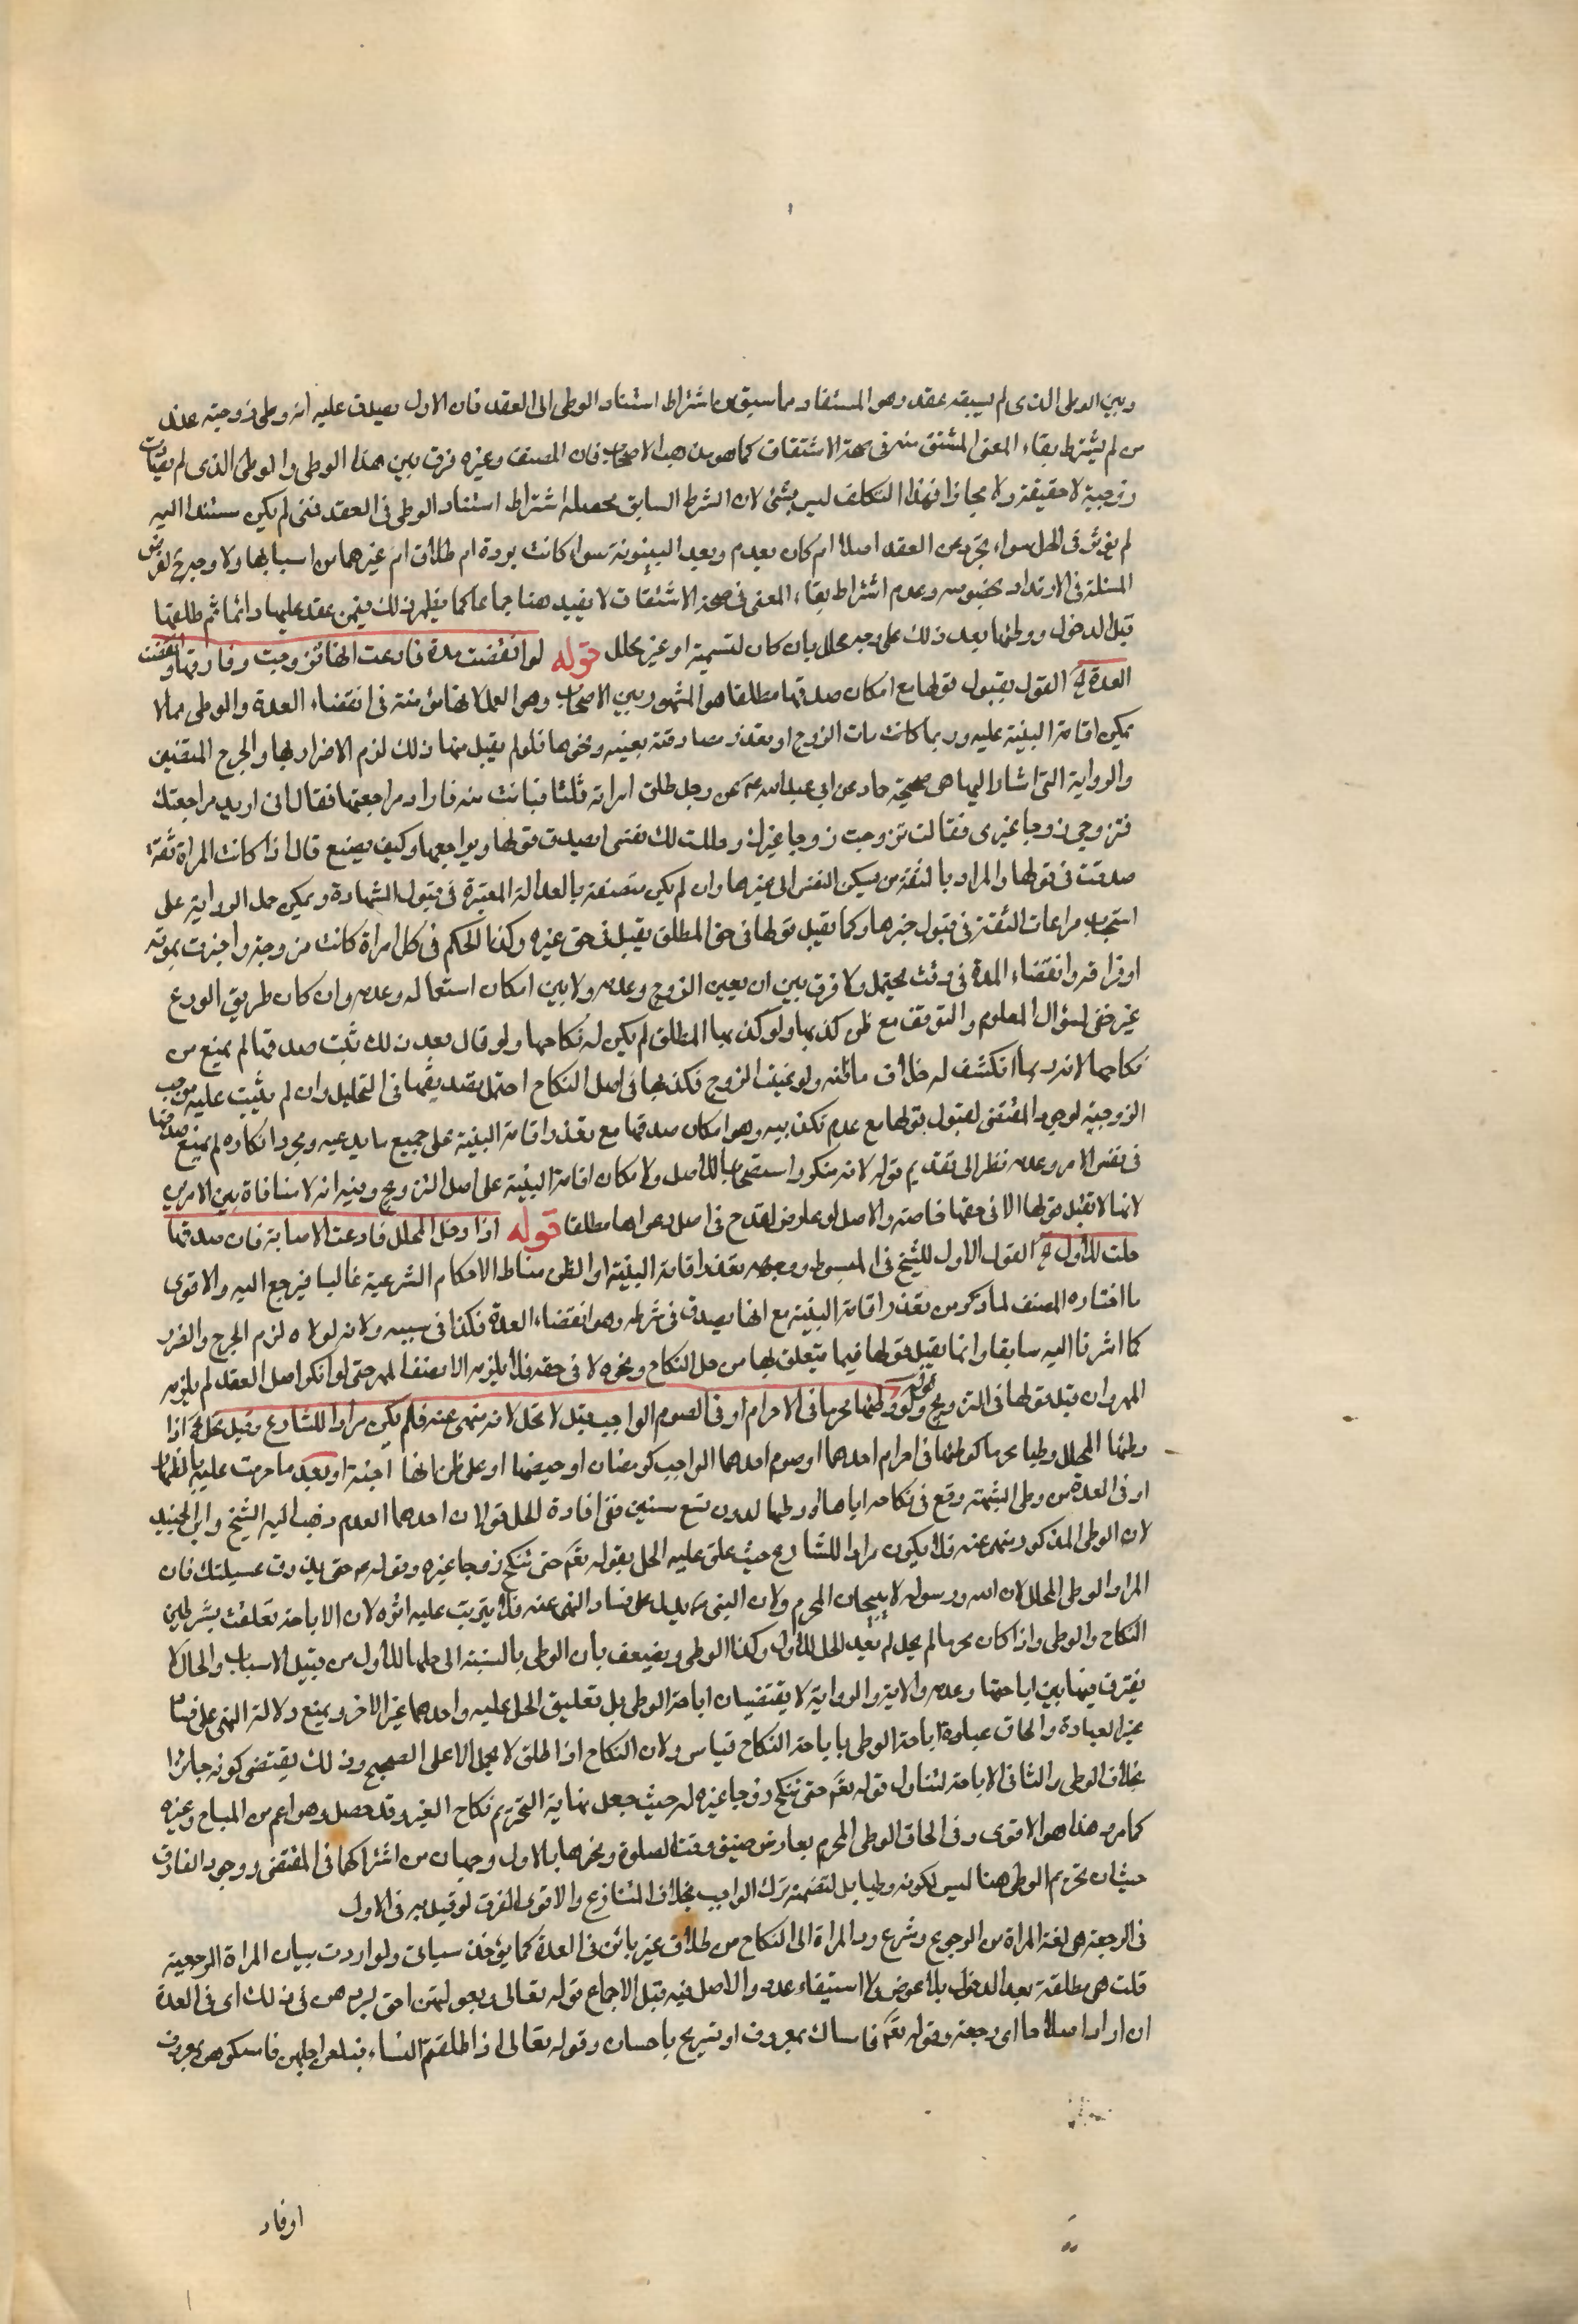 وبين الوطى الذى لم يسبقه عقد وهو المستفاد مما سبق من اشتراط استناد الوطى الى العقد فان الاول يصدق عليه انه وطى زوجته عند
من لم يشترط بقاء المعنى المشتق منه فى صحة الاشتقاق كما هو مذهب الاصحاب فان المصنف وغيره فرق بين هذا الوطى والوطى الذى لم
زوجية لا حقيقة ولا مجازا فهذا التكلف ليس بشئ لان الشرط السابق محصله اشتراط استناد الوطى فى العقد فمتى لم يكن مستندا اليه
لم يؤثر فى الحل سواء تجرد من العقد اصلا ام كان بعدم وبعد البينونة سواء كانت بردة ام طلاق ام غيرهما من اسبابها ولا وجه لفرض
المسئلة فى الارتداد بخصوصه وعدم اشتراط بقاء المعنى فى صحة الاشتقاق لا يفيد هنا جماعا كما يظهر ذلك فيمن عقد عليها دائما ثم طلقها
قبل الدخول ووطئها بعد ذلك على وجه محلل بان كان لشبهة او غير محلل قوله لو انقضت مدة فادعت انها تزوجت وفارقها وانقضت
العدة الخ القول بقبول قولها مع امكان صدقها مطلقا هو المشهور بين الاصحاب وهو العمل لانها مؤتمنة فى انقضاء العدة والوطى مما لا
تمكن اقامة البينة عليه وربما كانت مات الزوج او تعذر مصادقته بغيبته ونحوها فلو لم يقبل منها ذلك لزم الاضرار بها والحرج المنفيين
والرواية التى اشار اليها هى صحيحة حماد عن ابى عبد الله عم عن رجل طلق امراته ثلثا فبانت منه فاراد مراجعتها فقال انى اريد مراجعتك
فتزوجى زوجا غيرى فقالت تزوجت زوجا غيرك وحللت لك نفسى ايصدق قولها ويراجعها وكيف يصنع قال اذا كانت المراة ثقة
صدقت فى قولها والمراد بالثقة من يسكن النفس الى خبرها وان لم يكن متصفة بالعدالة المعتبرة فى قبول الشهادة ويمكن حمل الرواية على
استحباب مراعات الثقة فى قبول خبرها وكما يقبل قولها فى حق المطلق يقبل فى حق غيره وكذا الحكم فى كل امراة كانت مزوجة واخبرت بموته
او فراقه وانقضاء المدة فى وقت محتمل ولا فرق بين ان يعين الزوج وعدمه ولا بين امكان استعلامه وعدمه وان كان طريق الورع
غير خفى لسؤال المعلوم والتوقف مع ظن كذبها ولو كذبها المطلق لم يكن له نكاحها ولو قال بعد ذلك ثبت صدقها لم يمنع من
نكاحها لانه ربما انكشف له خلاف ما ظنه ولو عينت الزوج فكذبها فى اصل النكاح احتمل تصديقها فى التحليل وان لم يثبت عليه موجب
الزوجية لوجود المقتضى لقبول قولها مع عدم تكذيبه وهو امكان صدقها مع تعذر اقامة البينة على جميع ما يدعيه ومجرد انكاره لم يمنع صدقها
فى نفس الامر وعدمه نظرا الى تقديم قوله لانه منكر واستصحابا للاصل ولا مكان اقامة البينة على اصل التزويج وفيه انه لا منافاة بين الامرين
لانها لا تقبل قولها الا فى حقها خاصة والاصل لو عارض لقدح فى اصل دعواها مطلقا قوله اذا دخل المحلل فادعت الاصابة فان صدقها
حلت للاول الخ القول الاول للشيخ فى المبسوط ووجهه تعذر اقامة البينة او الظن مناط الاحكام الشرعية غالبا فيرجع اليه والاقوى
ما اختاره المصنف لما ذكر من تعذر اقامة البينة مع انها يصدق فى شرطه وهو انقضاء العدة فكذا فى سببه ولانه لولاه لزم الحرج والضرر
كما اشرنا اليه سابقا وانما يقبل قولها فيما يتعلق بها من حل النكاح ونحوه لا فى حقه فلا يلزمه الا نصف المهر حتى لو انكر اصل العقد لم يلزمه
المهر وان قبل قولها فى التزويج قوله ولو وطئها محرما فى الاحرام او فى الصوم الواجب قيل لا تحل لانه منهى عنه فلم يكن مرادا للشارع وقيل تحل الخ اذا
وطئها المحلل وطيا محرما كوطئها فى احرام احدهما او صوم احدهما الواجب كرمضان او حيضها او على ظن انها اجنبية او بعد ما حرمت عليه بالظهار
او فى العدة من وطى الشبهة وقع فى نكاحه اياها او وطئها لدون تسع سنين ففى افادة الحل قولان احدهما العدم ذهب اليه الشيخ وابن الجنيد
لان الوطى المذكور منهى عنه فلا يكون مرادا للشارع حيث علق عليه الحل بقوله تعالى حتى تنكح زوجا غيره وقوله ص حتى يذوق عسيلتك فان
المراد الوطى المحلل لان الله ورسوله لا يبيحان المحرم ولان النهى يدل على فساد المنهى عنه فلا يترتب عليه اثره لان الاباحة تعلقت بشرطين
النكاح والوطى واذا كان محرما لم يحل لم يفد الحل للاول وكذا الوطى ويضيعف بان الوطى بالنسبة الى حلها للاول من قبيل الاسباب والحال لا
يفترق فيها بين اباحتها وعدمه والاية والرواية لا يقتضيان اباحة الوطى بل تعليق الحل عليه واحدهما غير الاخر ويمنع دلالة النهى على فساد
غير العبادة والحاق عبادة اباحة الوطى باباحة النكاح قياس ولان النكاح اذا اطلق لا يحمل الا على الصحيح وذلك يقتضى كونه جائزا
بخلاف الوطى والثانى الاباحة لتناول قوله تعالى حتى تنكح زوجا غيره له حيث جعل نهاية التحريم نكاح الغير وقد حصل وهو اعم من المباح وغيره
كما مر وهذا هو الاقوى وفى الحاق الوطى المحرم بعارض ضيق وقت الصلوة ونحوها بالاول وجهان من اشتراكها فى المقتضى ووجود الفارق
حيث ان تحريم الوطى هنا ليس لكونه وطيا بل لتضمنه ترك الواجب بخلاف المتنازع والاقوى الفرق لو قيل به فى الاول
فى الرجعة هى لغة المراة من الرجوع وشرع رد المراة الى النكاح من طلاق غير بائن فى العدة كما يؤخذ سياتى ولو اردت بيان المراة الرجعية
قلت هى مطلقة بعد الدخول بلا عوض ولا استيفاء عدد والاصل فيه قبل الاجماع قوله تعالى وبعولتهن احق بردهن فى ذلك اى فى العدة
ان ارادوا اصلاحا اى رجعة وقوله تعالى فامساك بمعروف او تسريح باحسان وقوله تعالى اذا طلقتم النساء فبلغن اجلهن فامسكوهن بمعروف
او فار